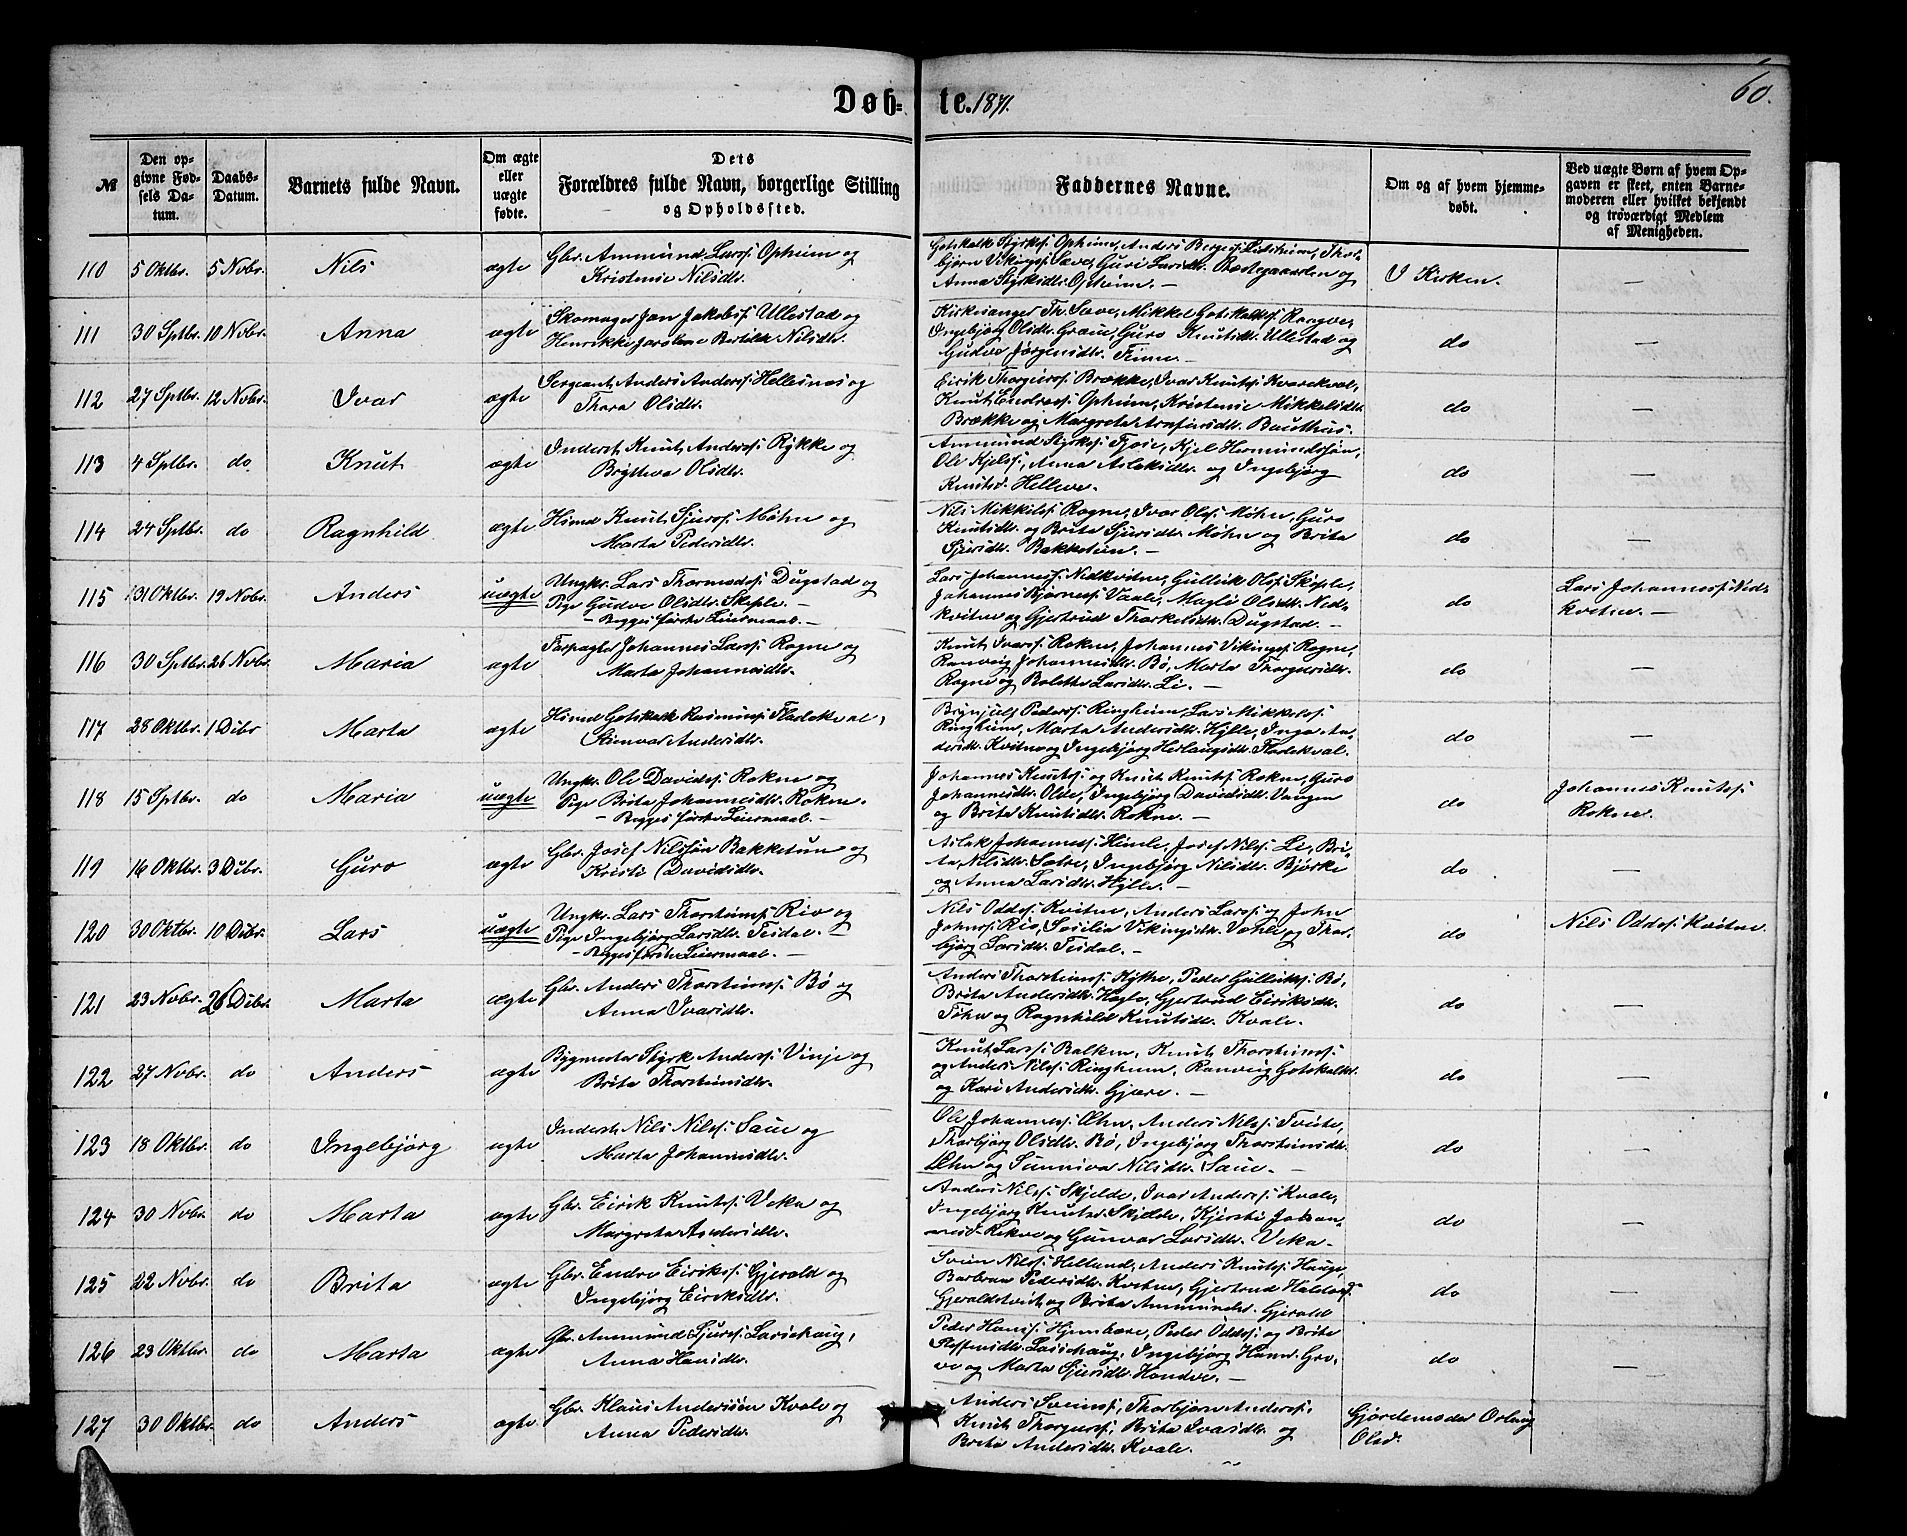 Døb-te. 1871.
60.
№
Den opgivne Fødsels Datum.
Daabs-Datum.
Barnets fulde Navn.
Om ægte eller uægte fødte.
Dets Forældres fulde Navn, borgerlige Stilling og Opholdssted.
Faddernes Navne.
Om og af hvem hjemmedøbt.
Ved uægte Børn af hvem Opgaven er skeet, enten Barnemoderen eller hvilket bekjendt og troværdigt Medlem af Menigheden.
110 5 Oktbr. 5 Novbr. Nils ægte Gbr. Ammund Larss: Opheim og
Kristense Nilsdtr.
Gotskalk Styrkss: Opheim, Anders Berges: Lidsheim, Thor-
bjørn Vikings: Save, Guri Larsdtr. Præstegaarden og
Anna Styrksdtr. Opheim. —
I Kirken. —
111 30 Septbr. 10 Novbr. Anna ægte Skomager Jan Jakobss: Ullestad og
Henrikke Jorolme Bertilde Nilsdtr.
Kirkesanger Th. Save, Mikkel Gotskalkss: Rongve,
Ingebjørg Olsdtr. Graue, Guro Knutsdtr. Ullestad og
Gudve Jørgensdtr. Finne. —
do —
112 27 Septbr. 12 Novbr. Ivar ægte Sergeant Anders Anderss: Hellesnæs og
Thora Olsdtr.
Eirik Thorgeirss: Brække, Ivar Knutss: Kvarekval,
Knut Endress: Opheim, Kristense Mikkelsdtr.
Brække og Margreta Arnfinsdtr. Bauthus.
do —
113 4 Septbr. do Knut ægte Inderst Knut Anderss: Rykke og
Brytteva Olsdtr.
Ammund Styrkss: Fjose, Kjel Hermundssøn,
Ole Kjelss:, Anna Aslaksdtr. og Ingebjørg
Knutsd. Helleve.
do —
114 24 Septbr. do Ragnhild ægte Hsmd Knut Sjurss: Møhn og
Marta Pedersdtr.
Nils Mikkelss: Rogne, Ivar Olss: Møhn, Guro
Knutsdtr. og Brita Sjursdtr. Møhn og Brita
Sjursdtr. Bakketun. —
do —
115 31 Oktbr. 19 Novbr. Anders uægte Ungkr. Lars Thormodss: Dugstad og
Pige Gudve Olsdtr. Skiple. —
— Begges første Leiermaal. —
Lars Johanness: Nedkvitne, Gullik Olss: Skiple,
Johannes Bjørness: Vaale, Magli Olsdtr. Ned-
kvitne og Gjertrud Thorkelsdtr. Dugstad. —
do Lars Johanness: Ned-
kvitne. —
116 30 Septbr. 26 Novbr. Maria ægte Forpagter Johannes Larss: Rogne og
Marta Johannesdtr.
Knut Ivarss: Rokne, Johannes Vikingss: Rogne,
Ranveig Johannesdtr. Bø, Marta Thorgersdtr.
Rogne og Bolette Larsdtr. Li. —
do —
117 28 Oktbr. 1 Dcbr Marta ægte Hsmd Gotskalk Rasmuss: Flatekval,
Steinvor Andersdtr.
Brynjulf Pederss: Ringheim, Lars Mikkelss:
Ringheim, Marta Andersdtr. Hylle, Inga An-
dersdtr. Kvitno og Ingebjørg Herlaugsdtr. Flatekval.
do —
118 15 Septbr. do Maria uægte Ungkr. Ole Davidss: Rokne og
Pige Brita Johannesdtr. Rokne. —
— Begges første Leiermaal. —
Johannes Knutss: og Knut Knutss: Rokne, Guro
Johannesdtr. Olde, Ingebjørg Davidsdtr. Vangen
og Brita Knutsdtr. Rokne. —
do Johannes Knutss:
Rokne.
119 16 Oktbr. 3 Dcbr. Guro ægte Gbr. Josef Nilssøn Bakketun og
Kristi Davidsdtr.
Aslak Johanness: Himle, Josef Nilss: Li, Bri-
ta Nilsdtr. Sætre, Ingebjørg Nilsdtr. Bjørke
og Anna Larsdtr. Hylle. —
do —
120 30 Oktbr. 10 Dcbr. Lars uægte Ungkr. Lars Thorsteinss: Rio og
Pige Ingebjørg Larsdtr. Teidal. —
— Begges første Leiermaal. —
Nils Oddss: Kvitne, Anders Larss: og John
Johnss: Rio, Sesilia Vikingsdtr. Væhle og Thor-
bjørg Larsdtr. Teidal. —
do Nils Oddss: Kvitne.
121 23 Novbr. 26 Dcbr. Marta ægte Gbr. Anders Thorsteinss: Bø og
Anna Ivarsdtr.
Anders Thorsteinss: Kythe, Peder Gullikss: Bø,
Brita Andersdtr. Haglo, Gjertrud Eiriksdtr.
Tøhn og Ragnhild Knutsdtr. Kvale.
do —
122 27 Novbr. do Anders ægte Bygmester Styrk Anderss: Vinje og
Brita Thorsteinsdtr.
Knut Larss: Balken, Knut Thorsteinss:
og Anders Nilss: Ringheim, Ranveig Gotskalksdtr.
og Kari Andersdtr. Gjære. —
do —
123 18 Oktbr. do Ingebjørg ægte Inderst Nils Nilss: Saue og
Marta Johannesdtr.
Ole Johanness: Øhn, Anders Nilss: Tvite,
Thorbjørg Olsdtr. Bø, Ingebjørg Thorsteinsdtr.
Øhn og Sunniva Nilsdtr. Saue. —
do —
124 30 Novbr. do Marta ægte Gbr. Eirik Knutss: Veka og
Margreta Andersdtr.
Anders Nilss: Skjelde, Ivar Anderss: Kvale,
Ingebjørg Knutsd. Skjelde, Kjersti Johan-
nesd. Rekve og Gunvor Larsdtr. Veka. —
do —
125 22 Novbr. do Brita ægte Gbr. Endre Eirikss: Gjerald og
Ingebjørg Eiriksdtr.
Svein Nilss: Helland, Anders Knutss: Hauge,
Barbraa Pedersdtr. Kvitne, Gjertrud Haldorsd.
Gjeraldstveit og Brita Ammundsdtr. Gjerald
do —
126 23 Oktbr. do Marta ægte Gbr. Ammund Sjurss: Lasschaug,
Anna Hansdtr.
Peder Hanss: Hjembære, Peder Oddss: og Brita
Steffensdtr. Lasschaug, Ingebjørg Hansd. Gro-
ve og Marta Sjursdtr. Hondve. —
do —
127 30 Oktbr. do Anders ægte Gbr. Klaus Anderssøn Kvale og
Anna Pedersdtr.
Anders Sveinss:, Thorbjørn Anderss:,
Knut Thorgerss:, Brita Ivarsdtr. og
Brita Andersdtr. Kvale.
Gjordemoder
Olsd.